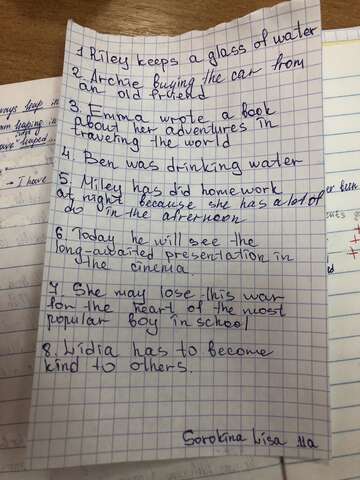 1. Riley keeps a glass of water
2. Archie buying the car from
an old friend
3. Emma wrote a book
about her adventures in
traveling the world
4. Ben was drinking water
5. Miley has did homework
at night because she has a lot of
do in the afternoon
6. Today he will see the
long-awaited presentation in
the cinema.
7. She may lose this war
for the heart of the most
popular boy in school
8. Lidia has to become
kind to others.
Sorokina Lisa 11a
leaping
→ I have